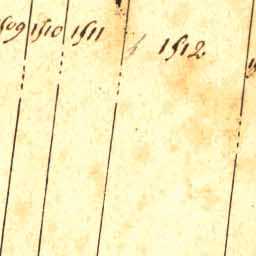 1509 1510 1511 1512